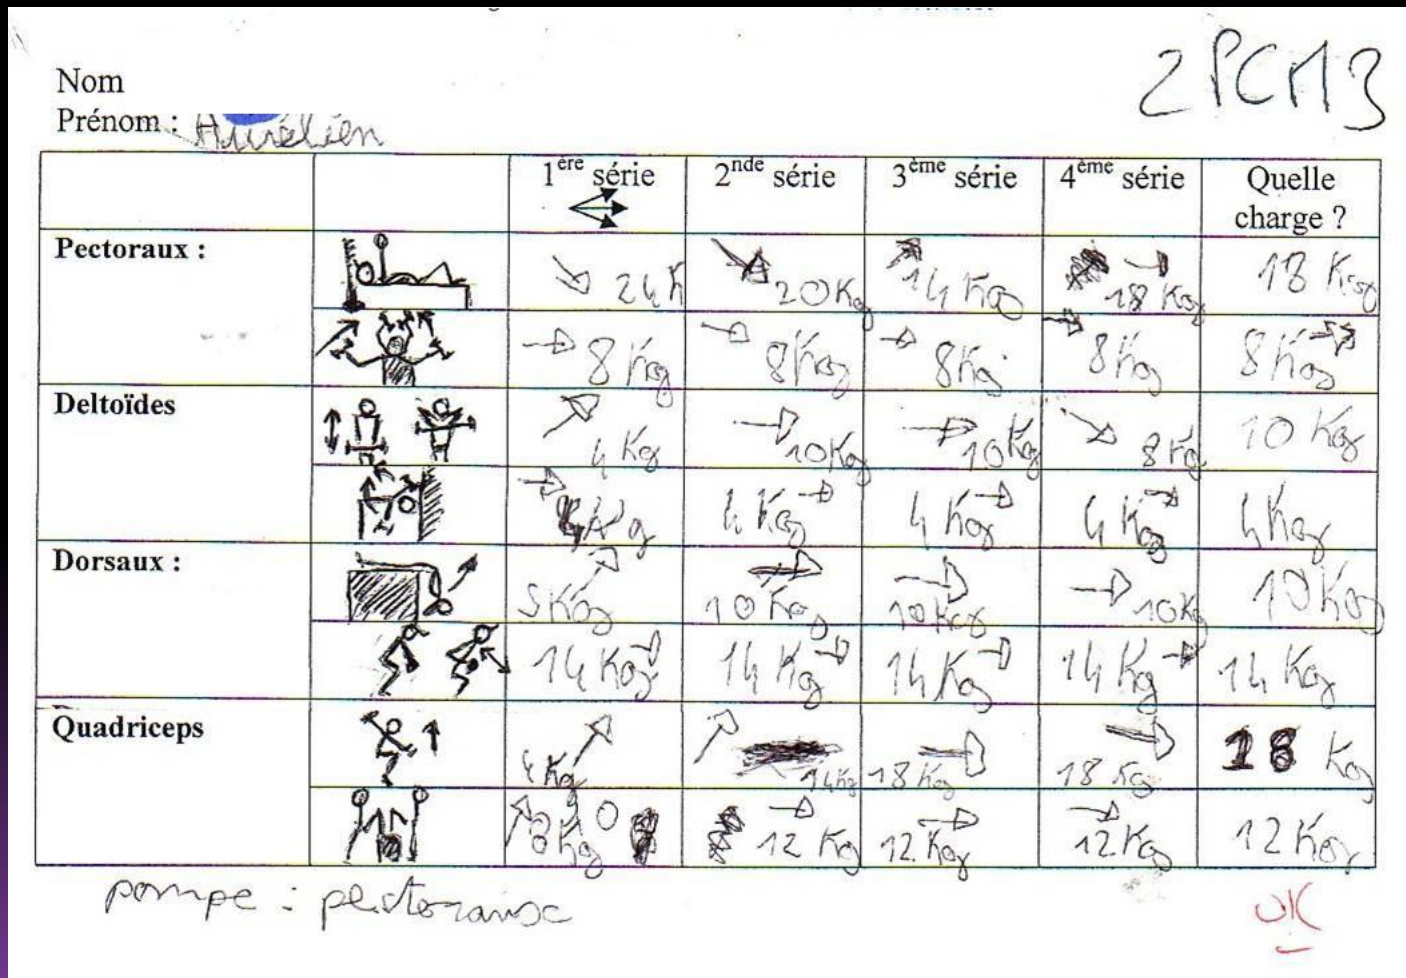 2PCM3
Nom
Prénom : Aurélien
1ère série 2nde série 3ème série 4ème série Quelle charge ?
Pectoraux : 24 K 20 Kg 14 Kg 18 Kg 18 Kg
8 Kg 8 Kg 8 Kg 8 Kg 8 Kg
Deltoïdes 4 Kg 10 Kg 10 Kg 8 Kg 10 Kg
4 Kg 4 Kg 4 Kg 4 Kg 4 Kg
Dorsaux : 5 Kg 10 Kg 10 Kg 10 Kg 10 Kg
14 Kg 14 Kg 14 Kg 14 Kg 14 Kg
Quadriceps 4 Kg 14 Kg 18 Kg 18 Kg 18 Kg
8 Kg 12 Kg 12 Kg 12 Kg 12 Kg
pompe : pectoraux
OK